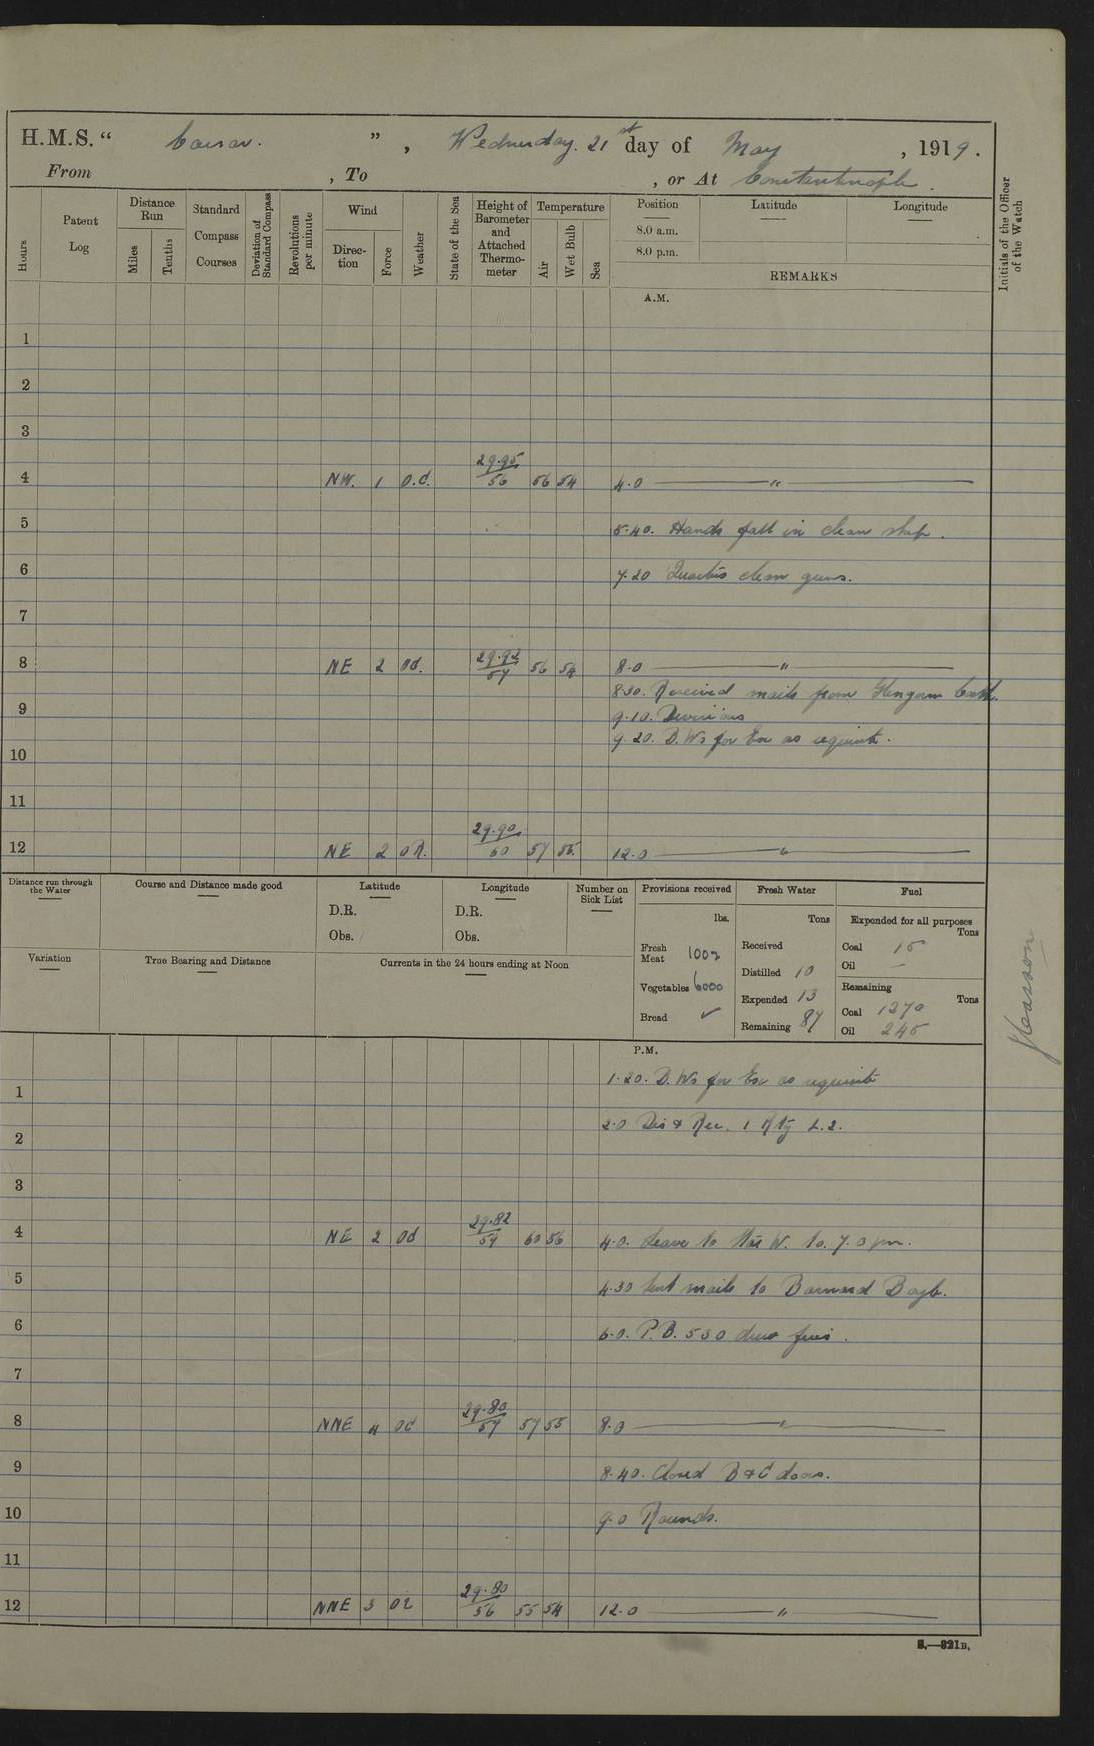 H.M.S. “ Caesar. ”, Wednesday. 21st day of May, 1919.
From , To , or At Constantinople.
Hours
Patent Log
Distance Run
Miles
Tenths
Standard Compass Courses
Deviation of Standard Compass
Revolutions per minute
Wind
Direction
Force
Weather
State of the Sea
Height of Barometer and Attached Thermometer
Temperature
Air
Wet Bulb
Sea
Position
8.0 a.m.
8.0 p.m.
Latitude
Longitude
REMARKS
Initials of the Officer of the Watch
A.M.
1
2
3
4 NW. 1 o.d. 29.95/56 56 54 4.0 ——— " ———
5 5.40. Hands fall in clean ship.
6 7.20 Quarters clean guns.
7
8 NE 2 od. 29.92/57 56 54 8.0 ——— " ———
8.30. Received mails from
9 9.10. Divisions
9.20. D.Ws for Ex as requisite.
10
11
12 NE 2 29.90/60 57 55. 12.0 ——— " ———
Distance run through the Water
Course and Distance made good
Latitude
D.R.
Obs.
Longitude
D.R.
Obs.
Number on Sick List
Provisions received
lbs.
Fresh Meat 1002
Vegetables 6000
Bread ✓
Fresh Water
Tons
Received
Distilled 10
Expended 13
Remaining 87
Fuel
Expended for all purposes
Tons
Coal 15
Oil —
Remaining
Tons
Coal 1270
Oil 245
Variation
True Bearing and Distance
Currents in the 24 hours ending at Noon
P.M.
1 1.20. D.Ws for Ex as requisite
2 2.0 Dis & Rec. 1 Rtg L.2.
3
4 NE 2 od 29.82/57 60 56 4.0. Leave to W. to. 7.0 pm.
5 4.30 Sent mails to Barnard
6 6.0. P.B. 530 drew fires.
7
8 NNE 4 od 29.80/57 57 55 8.0 ——— " ———
9 8.40. Closed B & C doors.
10 9.0 Rounds.
11
12 NNE 3 29.80/56 55 54 12.0 ——— " ———
S.—321B.